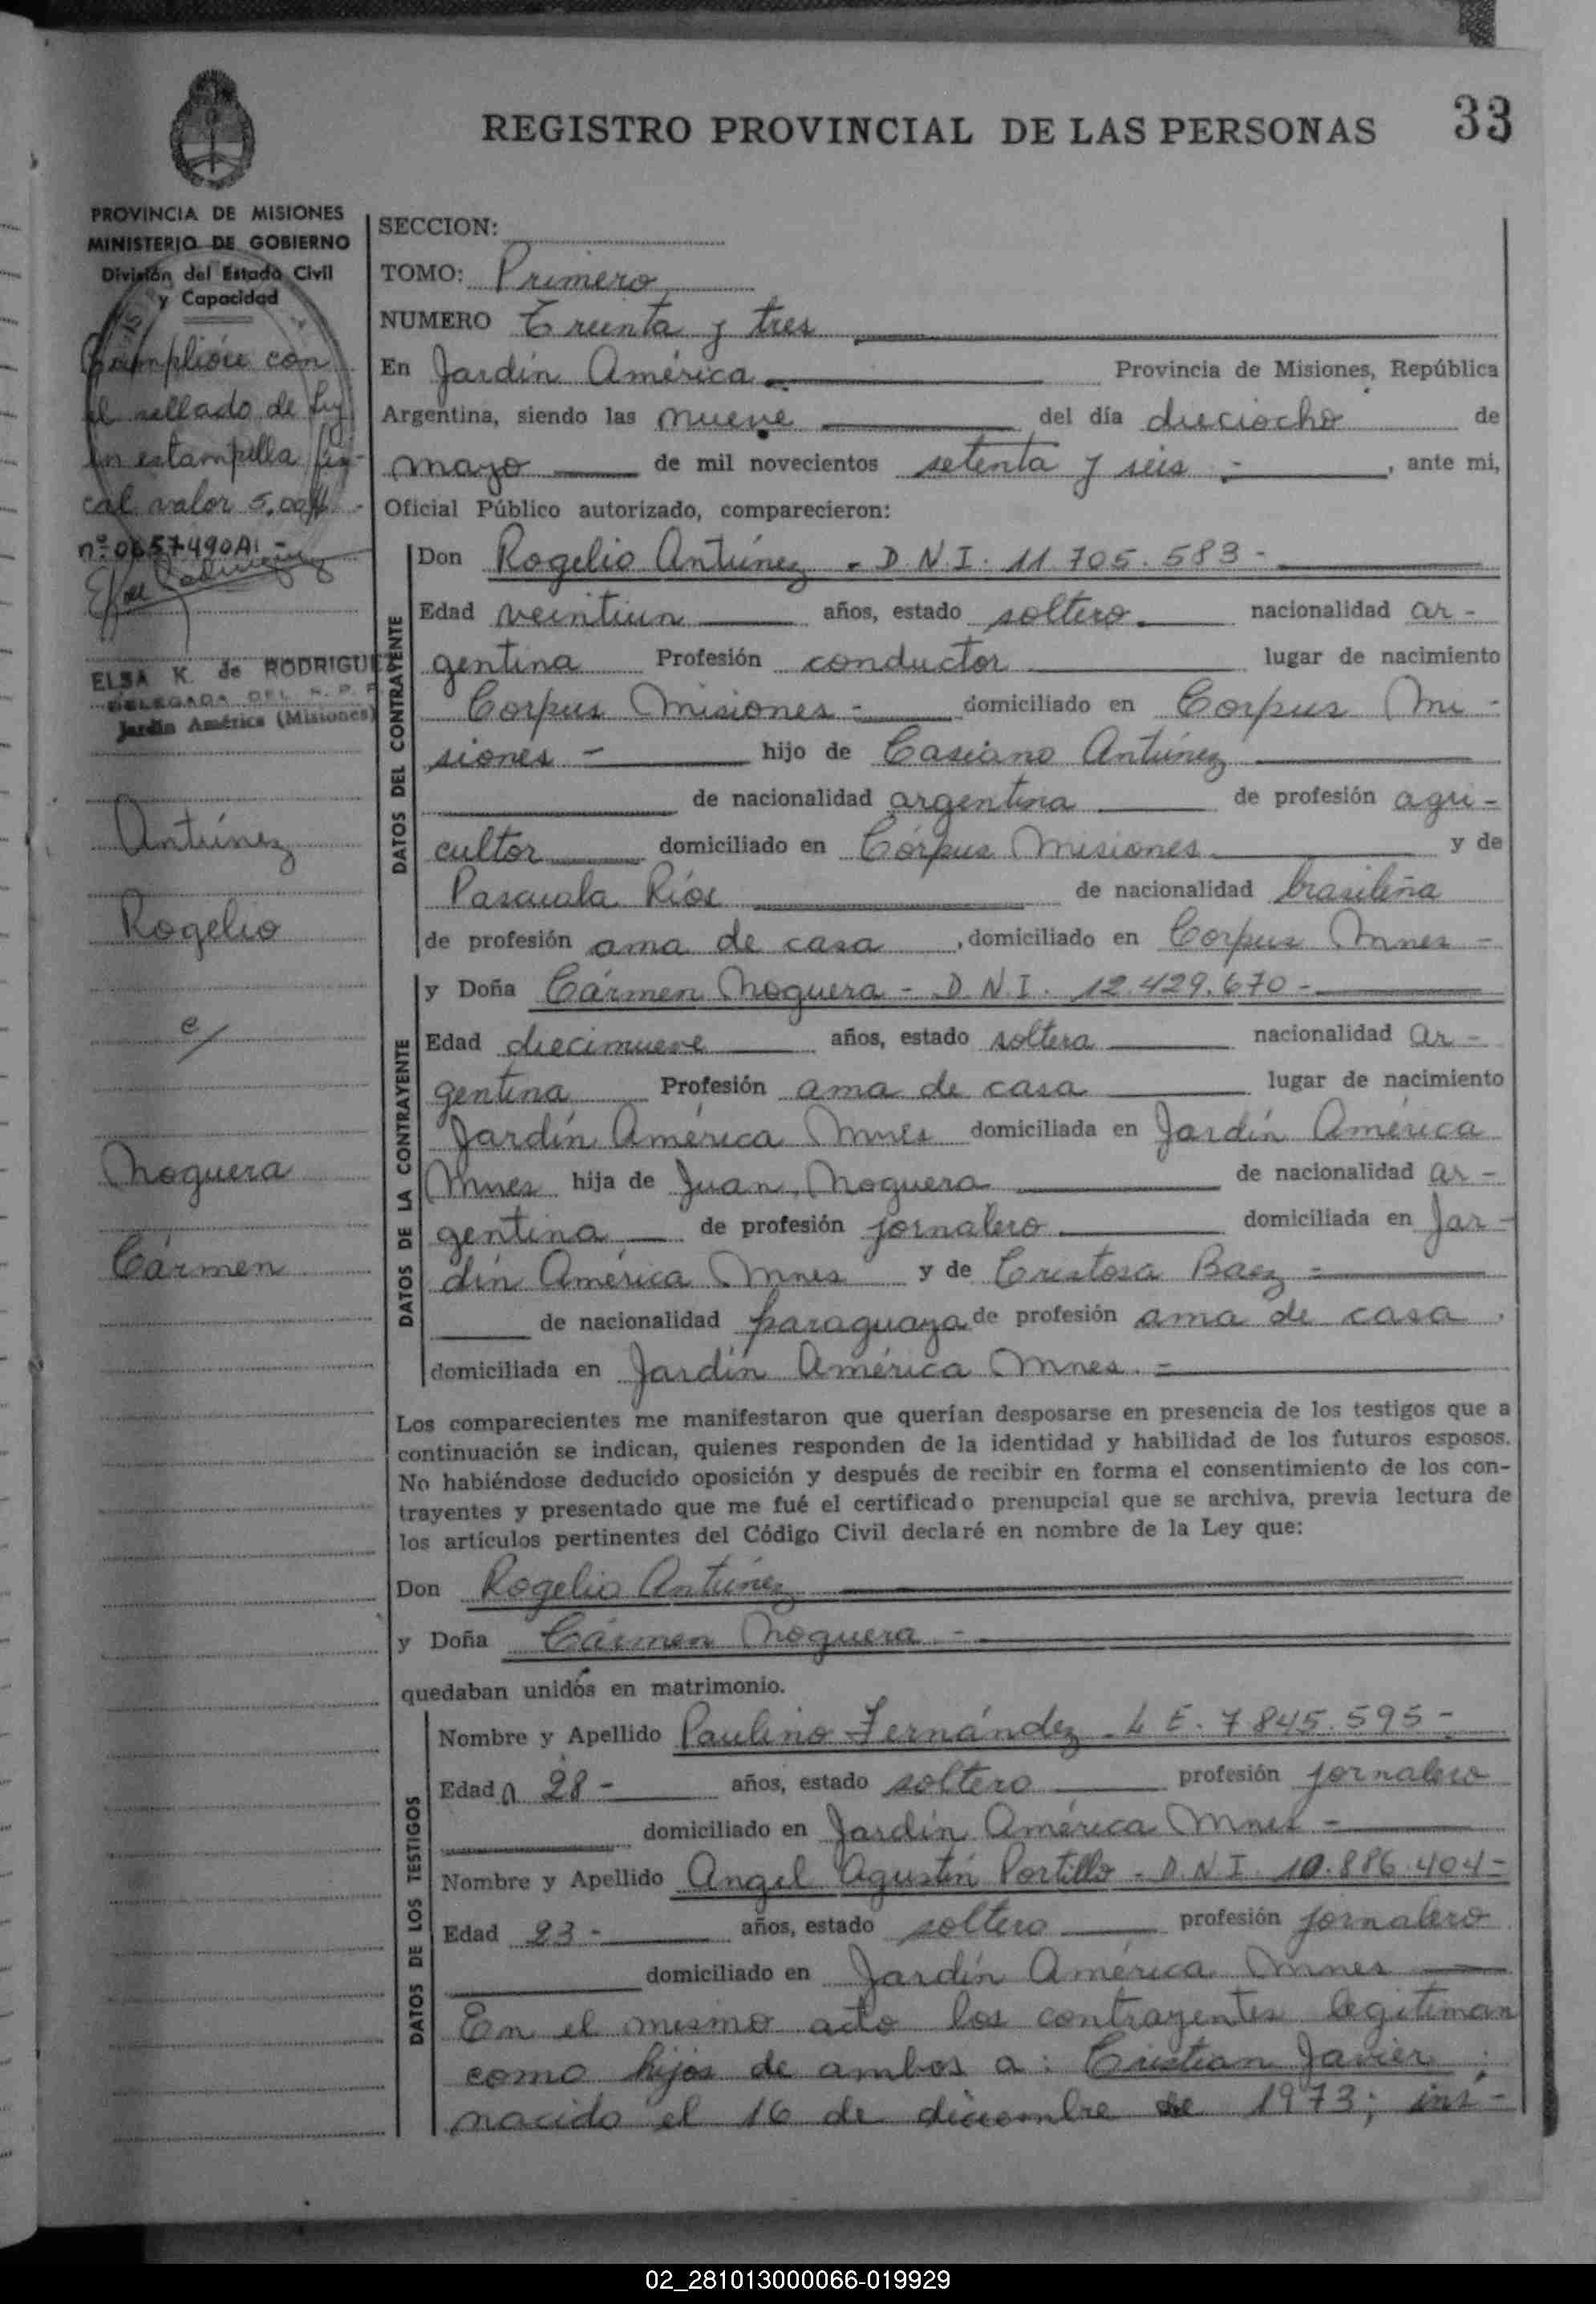 REGISTRO PROVINCIAL DE LAS PERSONAS 33
PROVINCIA DE MISIONES
MINISTERIO DE GOBIERNO
División del Estado Civil
y Capacidad
Cumplióse con
el sellado de ley
en estampilla fis-
cal valor 5,00
nº 0657490A1 -
ELSA K. de RODRIGUEZ
DELEGADA DEL R. P. P.
Jardín América (Misiones)
Antúnez
Rogelio
c/
Noguera
Cármen
SECCION:
TOMO: Primero
NUMERO Treinta y tres
En Jardín América Provincia de Misiones, República
Argentina, siendo las nueve del día dieciocho de
mayo de mil novecientos setenta y seis - , ante mi,
Oficial Público autorizado, comparecieron:
DATOS DEL CONTRAYENTE
Don Rogelio Antúnez - D.N.I. 11.705.583 -
Edad veintiun años, estado soltero nacionalidad ar-
gentina Profesión conductor lugar de nacimiento
Corpus Misiones - domiciliado en Corpus Mi-
siones - hijo de Casiano Antúnez
de nacionalidad argentina de profesión agri-
cultor domiciliado en Córpus Misiones y de
Pascuala Ríos de nacionalidad brasileña
de profesión ama de casa , domiciliado en Corpus Mnes -
DATOS DE LA CONTRAYENTE
y Doña Cármen Noguera - D.N.I. 12.429.670 -
Edad diecinueve años, estado soltera nacionalidad ar-
gentina Profesión ama de casa lugar de nacimiento
Jardín América Mnes domiciliada en Jardín América
Mnes hija de Juan Noguera de nacionalidad ar-
gentina de profesión jornalero domiciliada en Jar-
dín América Mnes y de Cristosa Baez -
de nacionalidad paraguaya de profesión ama de casa
domiciliada en Jardín América Mnes -
Los comparecientes me manifestaron que querían desposarse en presencia de los testigos que a
continuación se indican, quienes responden de la identidad y habilidad de los futuros esposos.
No habiéndose deducido oposición y después de recibir en forma el consentimiento de los con-
trayentes y presentado que me fué el certificado prenupcial que se archiva, previa lectura de
los artículos pertinentes del Código Civil declaré en nombre de la Ley que:
Don Rogelio Antúnez
y Doña Cármen Noguera -
quedaban unidos en matrimonio.
DATOS DE LOS TESTIGOS
Nombre y Apellido Paulino Fernández - L E. 7.845.595 -
Edad 28 - años, estado soltero profesión jornalero
domiciliado en Jardín América Mnes -
Nombre y Apellido Angel Agustín Portillo - D.N.I. 10.886.404 -
Edad 23 - años, estado soltero profesión jornalero
domiciliado en Jardín América Mnes
En el mismo acto los contrayentes legitiman
como hijos de ambos a: Cristian Javier
nacido el 16 de diciembre de 1973; ins-
02_281013000066-019929